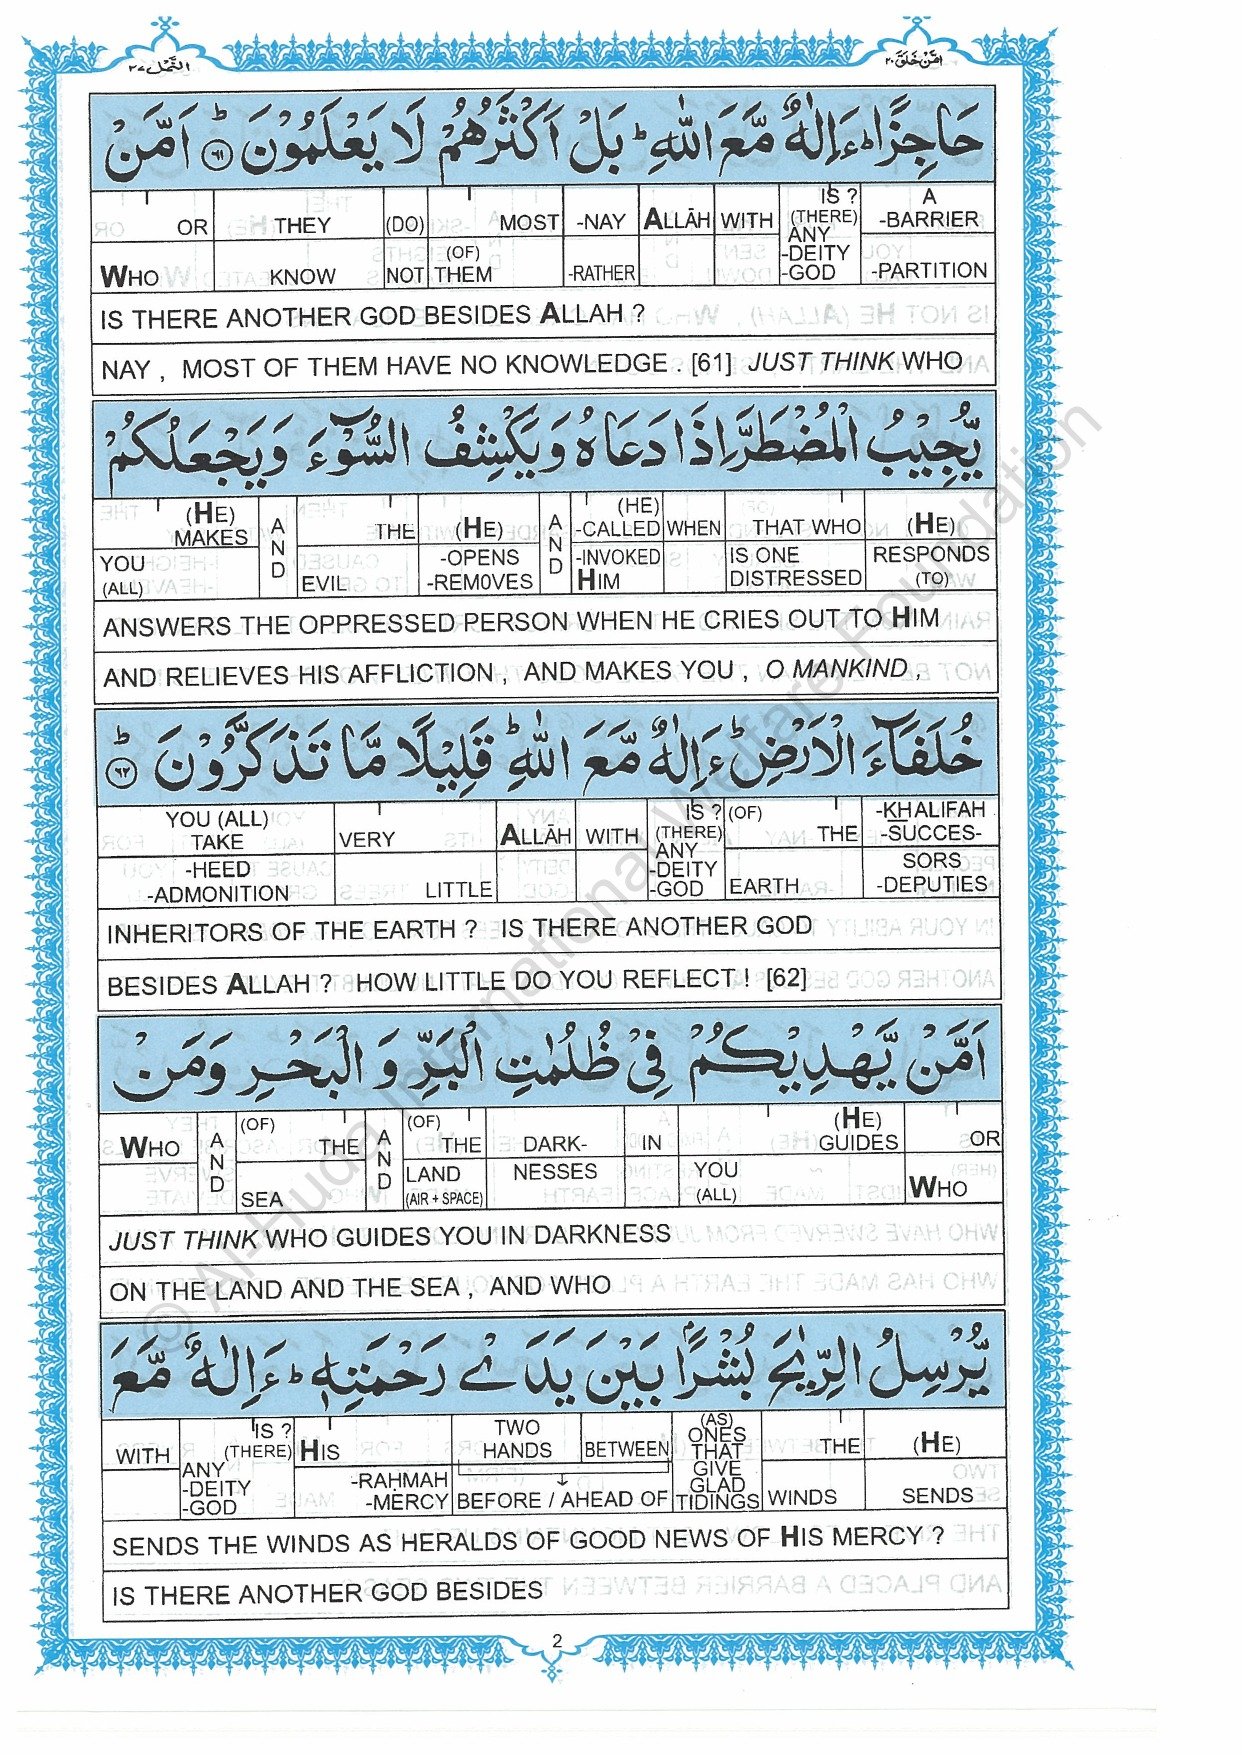 النَّمل ٢٧
امّن خلق ٢٠
حَاجِزًا ؕ ءَاِلٰهٌ مَّعَ اللّٰهِ ؕ بَلْ اَكْثَرُهُمْ لَا يَعْلَمُوْنَ ؕ ﴿٦١﴾ اَمَّنْ
OR THEY (DO) MOST -NAY ALLĀH WITH IS ? (THERE) ANY -DEITY -GOD A -BARRIER
WHO KNOW NOT (OF) THEM -RATHER -PARTITION
IS THERE ANOTHER GOD BESIDES ALLAH ?
NAY , MOST OF THEM HAVE NO KNOWLEDGE . [61] JUST THINK WHO
يُّجِيْبُ الْمُضْطَرَّ اِذَا دَعَاهُ وَيَكْشِفُ السُّوْٓءَ وَيَجْعَلُكُمْ
(HE) MAKES AND THE (HE) AND (HE) -CALLED WHEN THAT WHO (HE)
YOU (ALL) EVIL -OPENS -REM0VES -INVOKED HIM IS ONE DISTRESSED RESPONDS (TO)
ANSWERS THE OPPRESSED PERSON WHEN HE CRIES OUT TO HIM
AND RELIEVES HIS AFFLICTION , AND MAKES YOU , O MANKIND ,
خُلَفَآءَ الْاَرْضِ ؕ ءَاِلٰهٌ مَّعَ اللّٰهِ ؕ قَلِيْلًا مَّا تَذَكَّرُوْنَ ؕ ﴿٦٢﴾
YOU (ALL) TAKE VERY ALLĀH WITH IS ? (THERE) ANY -DEITY -GOD (OF) THE -KHALIFAH -SUCCES-
-HEED -ADMONITION LITTLE EARTH SORS -DEPUTIES
INHERITORS OF THE EARTH ? IS THERE ANOTHER GOD
BESIDES ALLAH ? HOW LITTLE DO YOU REFLECT ! [62]
اَمَّنْ يَّهْدِيْكُمْ فِيْ ظُلُمٰتِ الْبَرِّ وَ الْبَحْرِ وَمَنْ
WHO AND (OF) THE AND (OF) THE DARK- IN (HE) GUIDES OR
SEA LAND (AIR + SPACE) NESSES YOU (ALL) WHO
JUST THINK WHO GUIDES YOU IN DARKNESS
ON THE LAND AND THE SEA , AND WHO
يُّرْسِلُ الرِّيٰحَ بُشْرًاۢ بَيْنَ يَدَيْ رَحْمَتِهٖ ؕ ءَاِلٰهٌ مَّعَ
WITH IS ? (THERE) ANY -DEITY -GOD HIS TWO HANDS BETWEEN (AS) ONES THAT GIVE GLAD TIDINGS THE (HE)
-RAḤMAH -MERCY BEFORE / AHEAD OF WINDS SENDS
SENDS THE WINDS AS HERALDS OF GOOD NEWS OF HIS MERCY ?
IS THERE ANOTHER GOD BESIDES
2
© Al-Huda International Welfare Foundation